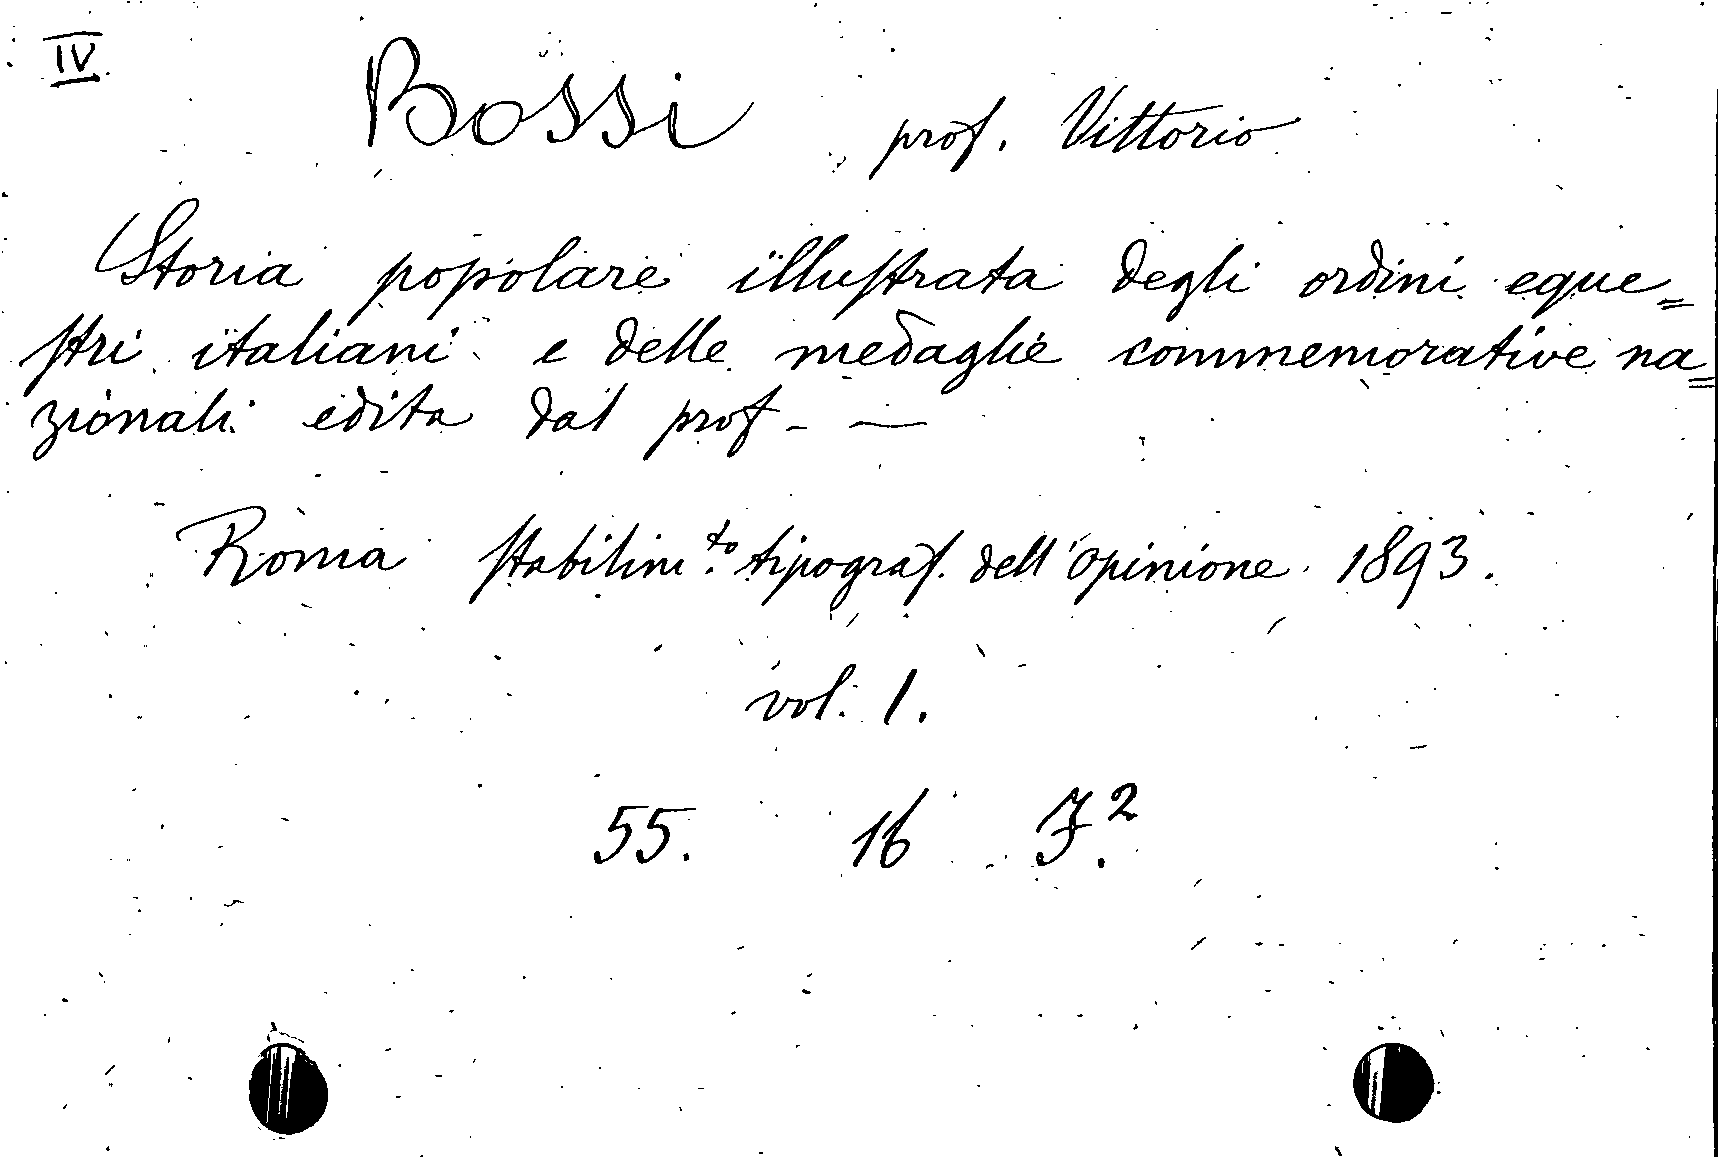 IV
Bossi prof. Vittorio
Storia popolare illustrata degli ordini eque=
stri italiani e delle medaglie commemorative na=
zionali edita dal prof - —
Roma stabilim.to tipograf. dell'Opinione. 1893.
vol. 1.
55. 16 F.2